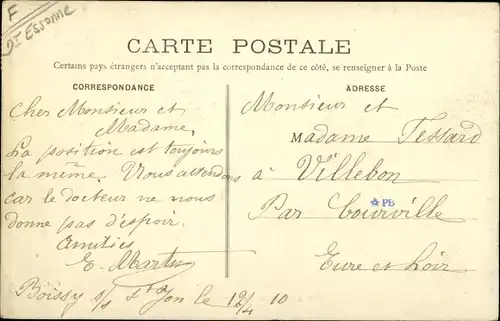 F
91 Essonne
CARTE POSTALE
Certains pays étrangers n'acceptant pas la correspondance de ce côté, se renseigner à la Poste
CORRESPONDANCE
Cher Monsieur et
Madame,
La position est toujours
la même. Nous attendons
car le docteur ne nous
donne pas d'espoir.
Amitiés
E. Martin
Boissy s/s St Yon le 12/4 10
ADRESSE
Monsieur et
Madame Tessard
à Villebon
Par Courville
PB
Eure et Loir